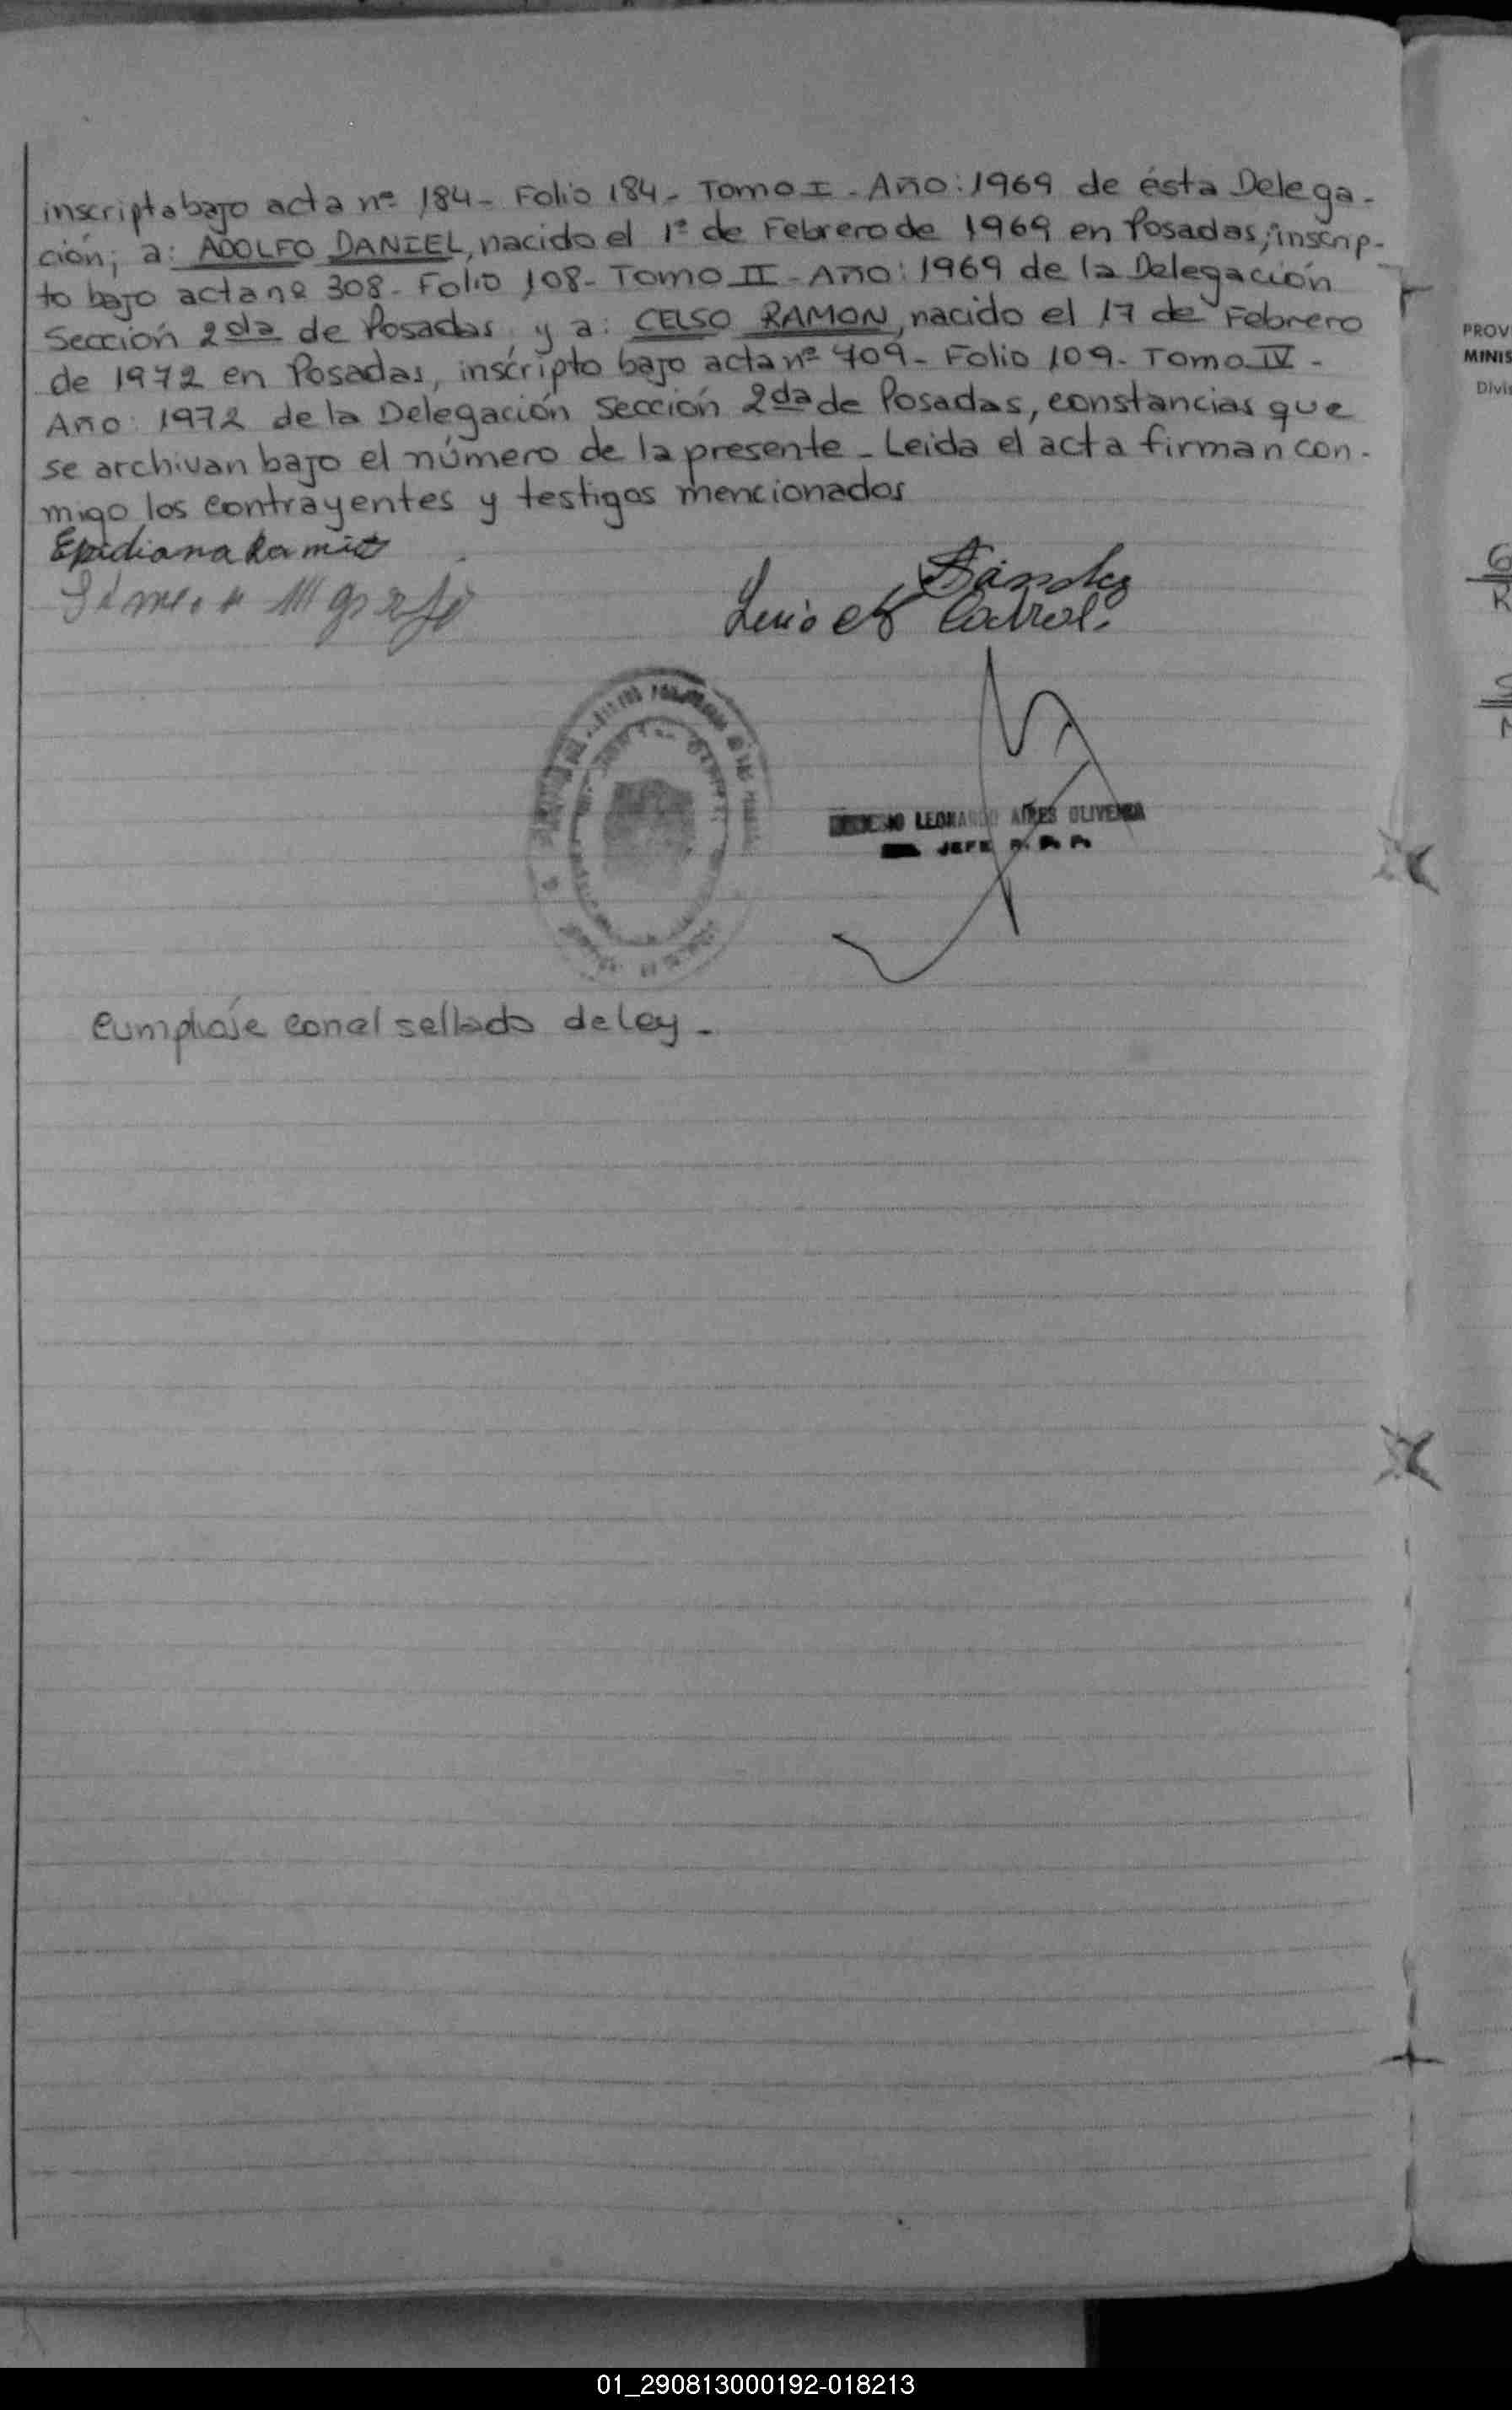 inscripta bajo acta nº 184- Folio 184- Tomo I - Año: 1969 de ésta Delega-
ción; a: ADOLFO DANIEL, nacido el 1º de Febrero de 1969 en Posadas, inscrip-
to bajo acta nº 308- Folio 108- Tomo II - Año: 1969 de la Delegación
Sección 2da de Posadas, y a: CELSO RAMON, nacido el 17 de Febrero
de 1972 en Posadas, inscripto bajo acta nº 709- Folio 109- Tomo IV -
Año: 1972 de la Delegación Sección 2da de Posadas, constancias que
se archivan bajo el número de la presente - Leida el acta firman con-
migo los contrayentes y testigos mencionados
Epidiana Ramirez
Sánchez
Luis Cabral
LEONARDO AIRES OLIVEIRA
JEFE
Cumplase con el sellado de ley -
PROV
MINIS
Divis
01_290813000192-018213